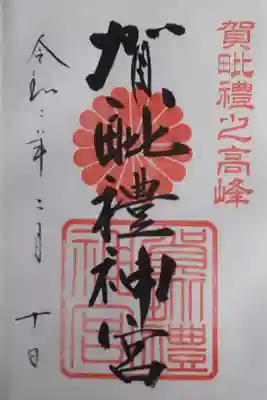 賀毗禮之高峰
賀毗禮神宮
令和二年二月十日
賀毗禮神宮